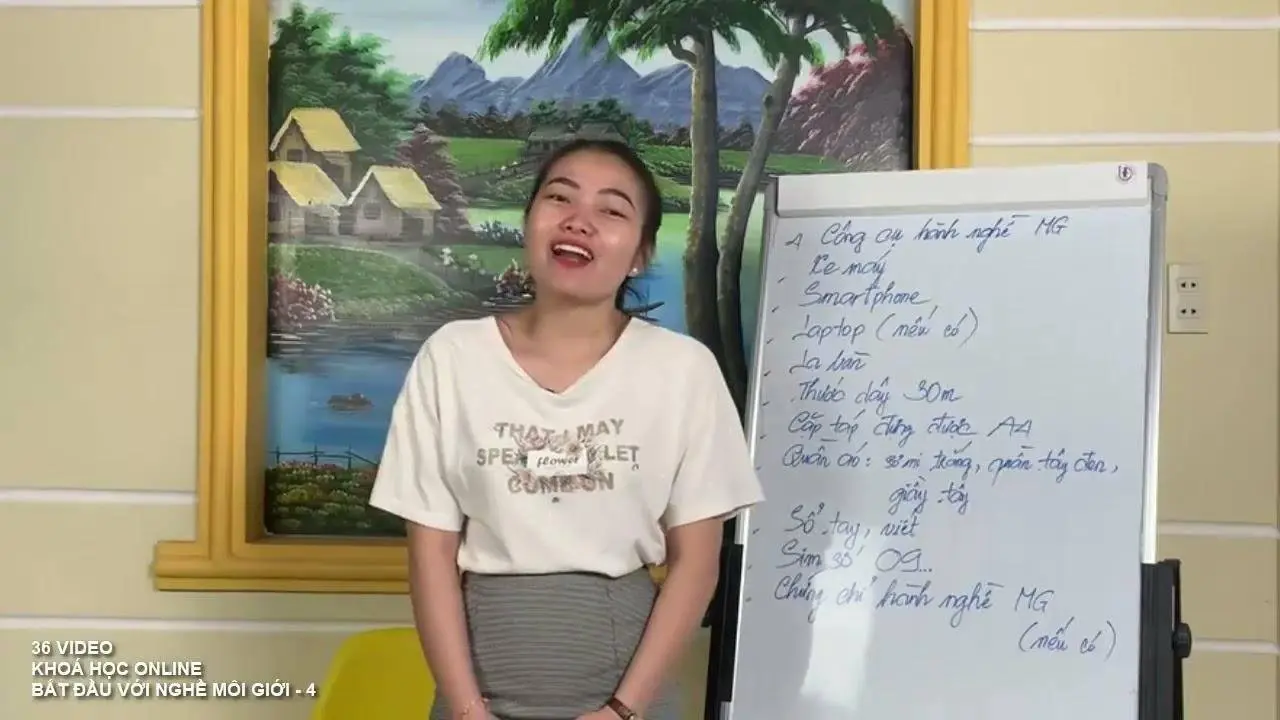 A Công cụ hành nghề MG
- Xe máy
- Smartphone
- Laptop (nếu có)
- La bàn
- Thước dây 30m
- Cặp táp đựng được A4
- Quần áo: sơ mi trắng, quần tây đen,
giầy tây
- Sổ tay, viết
- Sim số 09...
- Chứng chỉ hành nghề MG
(nếu có)
THAT I MAY
flower
LET
COME ON
36 VIDEO
KHOÁ HỌC ONLINE
BẮT ĐẦU VỚI NGHỀ MÔI GIỚI - 4